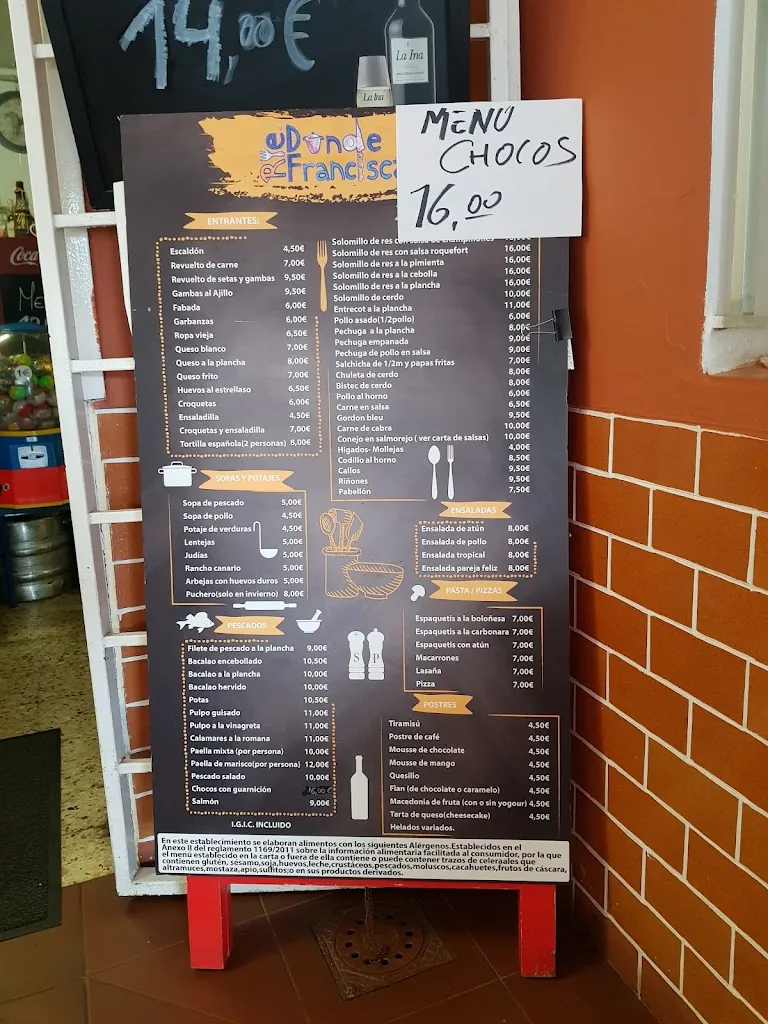 14,00€
La Ina
La Ina
Coca
Me
MENÚ
CHOCOS
16,00
Donde
Francisca
ENTRANTES:
Escaldón 4,50€
Revuelto de carne 7,00€
Revuelto de setas y gambas 9,50€
Gambas al Ajillo 9,50€
Fabada 6,00€
Garbanzas 6,00€
Ropa vieja 6,50€
Queso blanco 7,00€
Queso a la plancha 8,00€
Queso frito 7,00€
Huevos al estrellaso 6,50€
Croquetas 6,00€
Ensaladilla 4,50€
Croquetas y ensaladilla 7,00€
Tortilla española(2 personas) 8,00€
SOPAS Y POTAJES
Sopa de pescado 5,00€
Sopa de pollo 4,50€
Potaje de verduras 4,50€
Lentejas 5,00€
Judías 5,00€
Rancho canario 5,00€
Arbejas con huevos duros 5,00€
Puchero(solo en invierno) 8,00€
PESCADOS
Filete de pescado a la plancha 9,00€
Bacalao encebollado 10,50€
Bacalao a la plancha 10,00€
Bacalao hervido 10,00€
Potas 10,50€
Pulpo guisado 11,00€
Pulpo a la vinagreta 11,00€
Calamares a la romana 11,00€
Paella mixta (por persona) 10,00€
Paella de marisco(por persona) 12,00€
Pescado salado 10,00€
Chocos con guarnición 16,00€
Salmón 9,00€
I.G.I.C. INCLUIDO
Solomillo de res con salsa de champiñones
Solomillo de res con salsa roquefort 16,00€
Solomillo de res a la pimienta 16,00€
Solomillo de res a la cebolla 16,00€
Solomillo de res a la plancha 16,00€
Solomillo de cerdo 10,00€
Entrecot a la plancha 11,00€
Pollo asado(1/2pollo) 6,00€
Pechuga a la plancha 8,00€
Pechuga empanada 9,00€
Pechuga de pollo en salsa 9,00€
Salchicha de 1/2m y papas fritas 7,00€
Chuleta de cerdo 8,00€
Bistec de cerdo 8,00€
Pollo al horno 6,00€
Carne en salsa 6,50€
Gordon bleu 9,50€
Carne de cabra 10,00€
Conejo en salmorejo ( ver carta de salsas) 10,00€
Higados- Mollejas 4,00€
Codillo al horno 8,50€
Callos 9,50€
Riñones 9,50€
Pabellón 7,50€
ENSALADAS
Ensalada de atún 8,00€
Ensalada de pollo 8,00€
Ensalada tropical 8,00€
Ensalada pareja feliz 8,00€
PASTA / PIZZAS
Espaquetis a la boloñesa 7,00€
Espaquetis a la carbonara 7,00€
Espaquetis con atún 7,00€
Macarrones 7,00€
Lasaña 7,00€
Pizza 7,00€
S P
POSTRES
Tiramisú 4,50€
Postre de café 4,50€
Mousse de chocolate 4,50€
Mousse de mango 4,50€
Quesillo 4,50€
Flan (de chocolate o caramelo) 4,50€
Macedonia de fruta (con o sin yogour) 4,50€
Tarta de queso(cheesecake) 4,50€
Helados variados.
En este establecimiento se elaboran alimentos con los siguientes Alérgenos.Establecidos en el
Anexo II del reglamento 1169/2011 sobre la información alimentaria facilitada al consumidor, por la que
el menú establecido en la carta o fuera de ella contiene o puede contener trazos de celeraales que
contienen glutén, sésamo,soja,huevos,leche,crustáceos,pescados,moluscos,cacahuetes,frutos de cáscara,
altramuces,mostaza,apio,sulfitos;o en sus productos derivados.